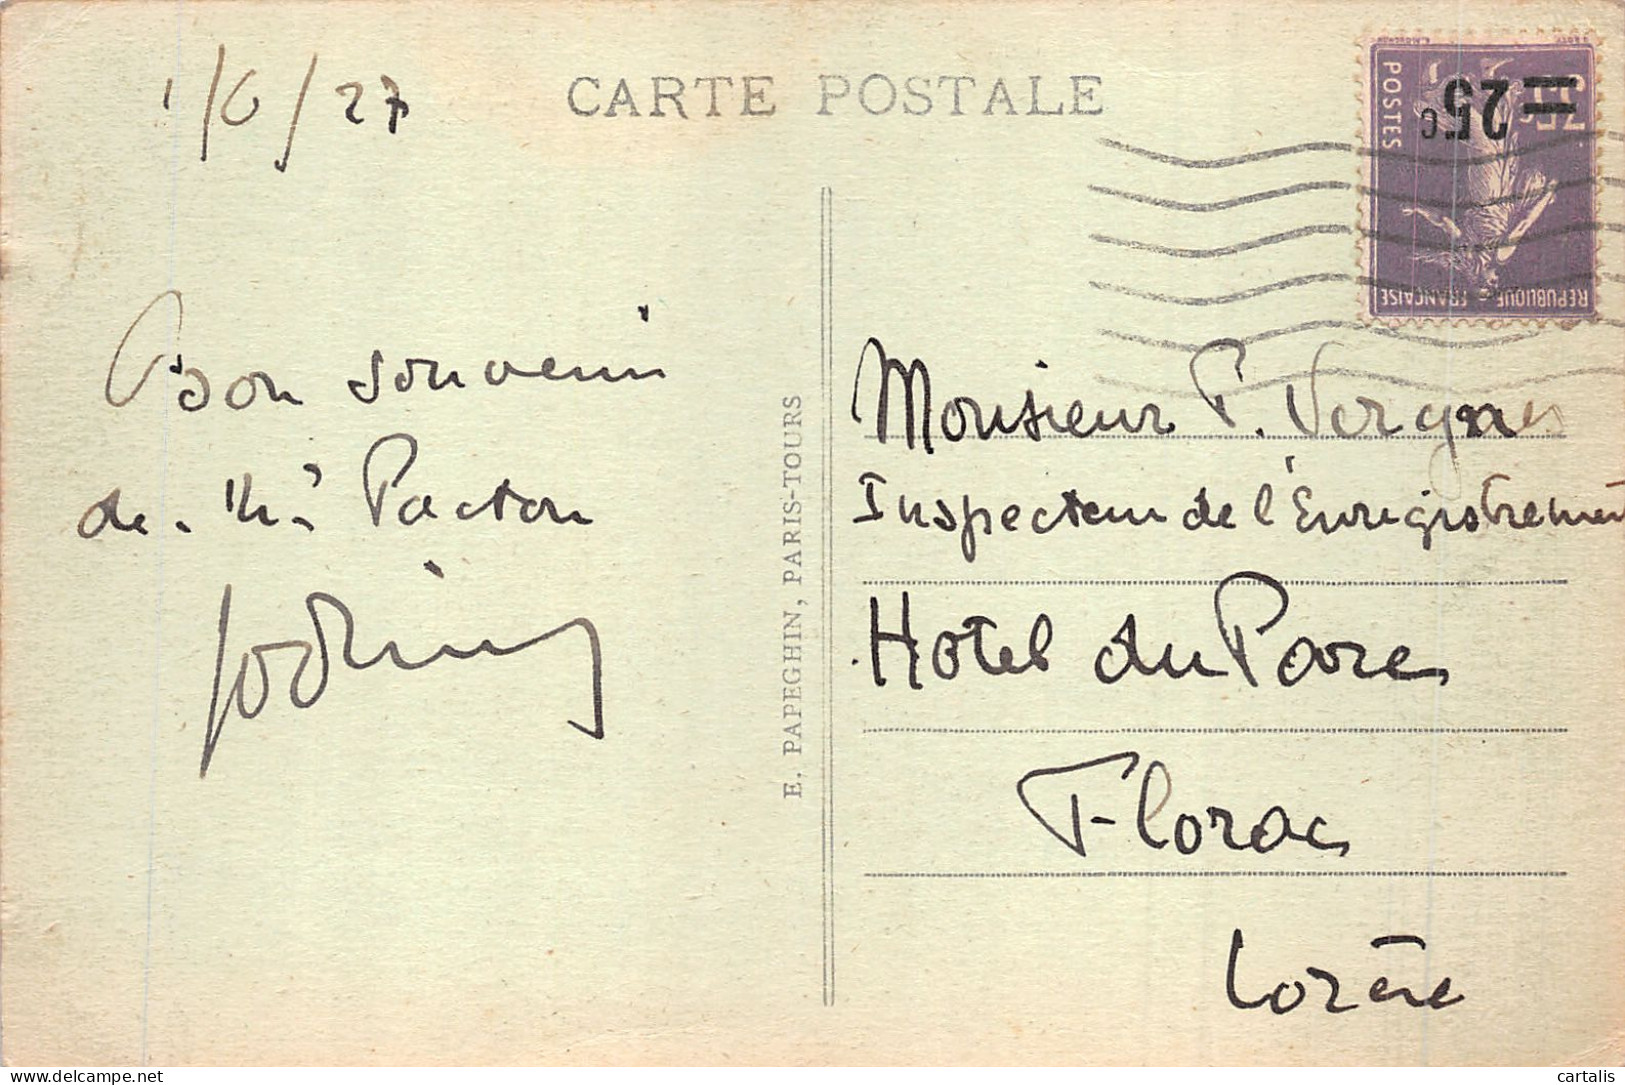 1/6/27
CARTE POSTALE
POSTES
25c
REPUBLIQUE FRANÇAISE
Bon souvenir
de Mr Pacton
E. PAPEGHIN, PARIS-TOURS
Monsieur P. Vergnes
Inspecteur de l'Enregistrement
Hotel du Parc
Florac
Lozère
cartalis